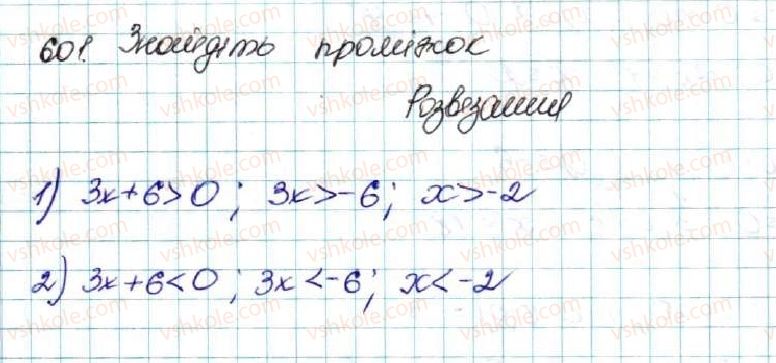 601. Знайдіть проміжок
Розвезання
1) 3x+6>0; 3x>-6; x>-2
2) 3x+6<0; 3x<-6; x<-2
vshkole.com